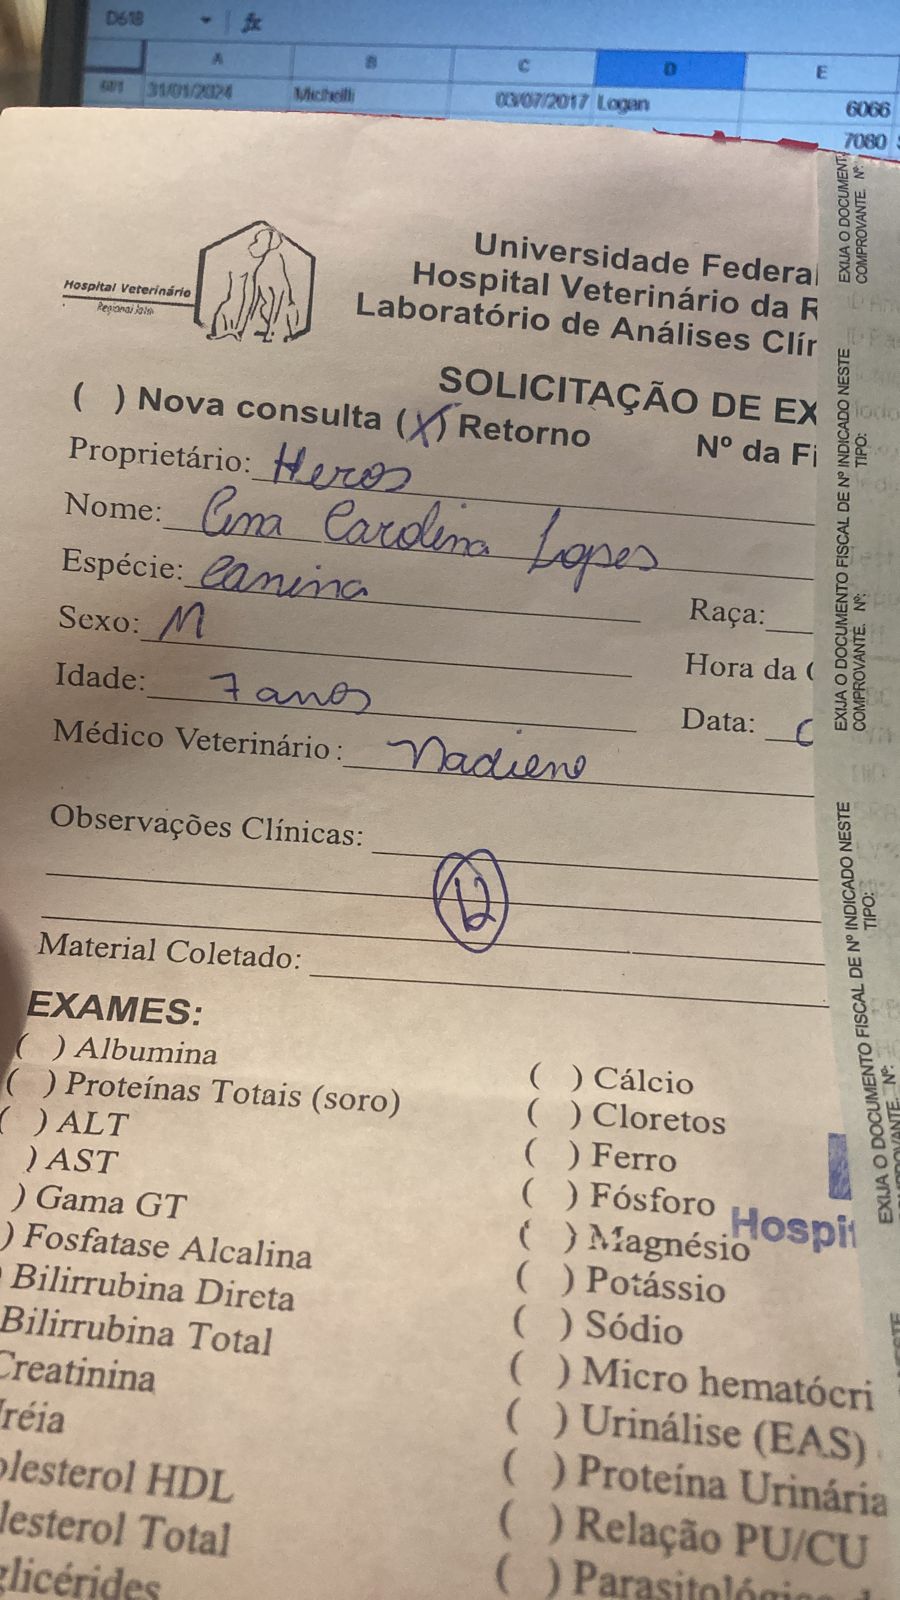 D618 fx
A B C D E
31/01/2024 Michelli 03/07/2017 Logan 6066
7080
Hospital Veterinário
Regional Jataí
Universidade Federal
Hospital Veterinário da R
Laboratório de Análises Clín
SOLICITAÇÃO DE EX
( ) Nova consulta (X) Retorno Nº da Fi
Proprietário: Heros
Nome: Ana Carolina Lopes
Espécie: Canina
Raça:
Sexo: M
Hora da C
Idade: 7 anos
Data:
Médico Veterinário: Nadiene
Observações Clínicas:
12
Material Coletado:
EXAMES:
( ) Albumina
( ) Proteínas Totais (soro)
( ) ALT
) AST
) Gama GT
) Fosfatase Alcalina
Bilirrubina Direta
Bilirrubina Total
Creatinina
Uréia
olesterol HDL
lesterol Total
glicérides
( ) Cálcio
( ) Cloretos
( ) Ferro
( ) Fósforo
( ) Magnésio
( ) Potássio
( ) Sódio
( ) Micro hematócri
( ) Urinálise (EAS)
( ) Proteína Urinária
( ) Relação PU/CU
( ) Parasitológico d
Hospit
EXIJA O DOCUMENT
COMPROVANTE. Nº:
EXIJA O DOCUMENTO FISCAL DE Nº INDICADO NESTE
COMPROVANTE. Nº: TIPO:
EXIJA O DOCUMENTO FISCAL DE Nº INDICADO NESTE
VANTE. Nº: TIPO:
NESTE